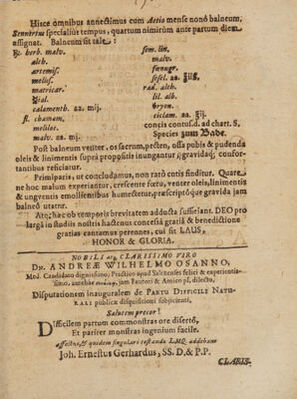 Hisce omnibus annectimus cum Aetio mense nonô balneum,
Sennertus specialiùs tempus, quartum nimirùm ante partum diem
assignat. Balneum sit tale:
℞. herb. malv.
alth.
artemis.
meliss.
matricar.
calamenth. aa. mij.
fl. chamom.
melilot.
malv. aa. mij.
sem. lin.
malv.
fœnugr.
sesel. aa.
rad. alth.
lil. alb.
bryon.
ciclam. aa.
concis contus. d. ad chart. S.
Species zum Bade.
Post balneum veniter, os sacrum, pecten, ossa pubis & pudenda
oleis & linimentis suprà propositis inungantur; gravidaq; confor-
tantibus reficiatur.
Primiparis, ut concludamus, non ratò entis finditur. Quare
ne hoc malum experiantur, crescente fœtu, venter oleis, linimentis
& unguentis emollientibus humectetur, præscriptóque gravida jam
balneô utatur.
Atq; hæc ob temporis brevitatem adducta sufficiant. DEO pro
largâ in studiis nostris hactenus concessâ gratiâ & benedictione
gratias canamus perennes, cui sit LAUS,
HONOR & GLORIA.
NOBILI atq; CLARISSIMO VIRO
DN. ANDREÆ WILHELMO OSANNO,
Med. Candidato dignissimo, Practico apud Salcenses felici & experientis-
simo, antehac jam Fautori & Amico pl. dilecto,
Disputationem inauguralem de PARTU DIFFICILI NATU-
RALI publicæ disquisitioni subjicienti,
Salutem precor!
Difficilem partum commonstras ore disertô,
Et pariter monstras ingenium facile.
affectu, & quidem singulari testando LMQ addebam
Joh. Ernestus Gerhardus, SS. D. & P. P.
CLARIS-